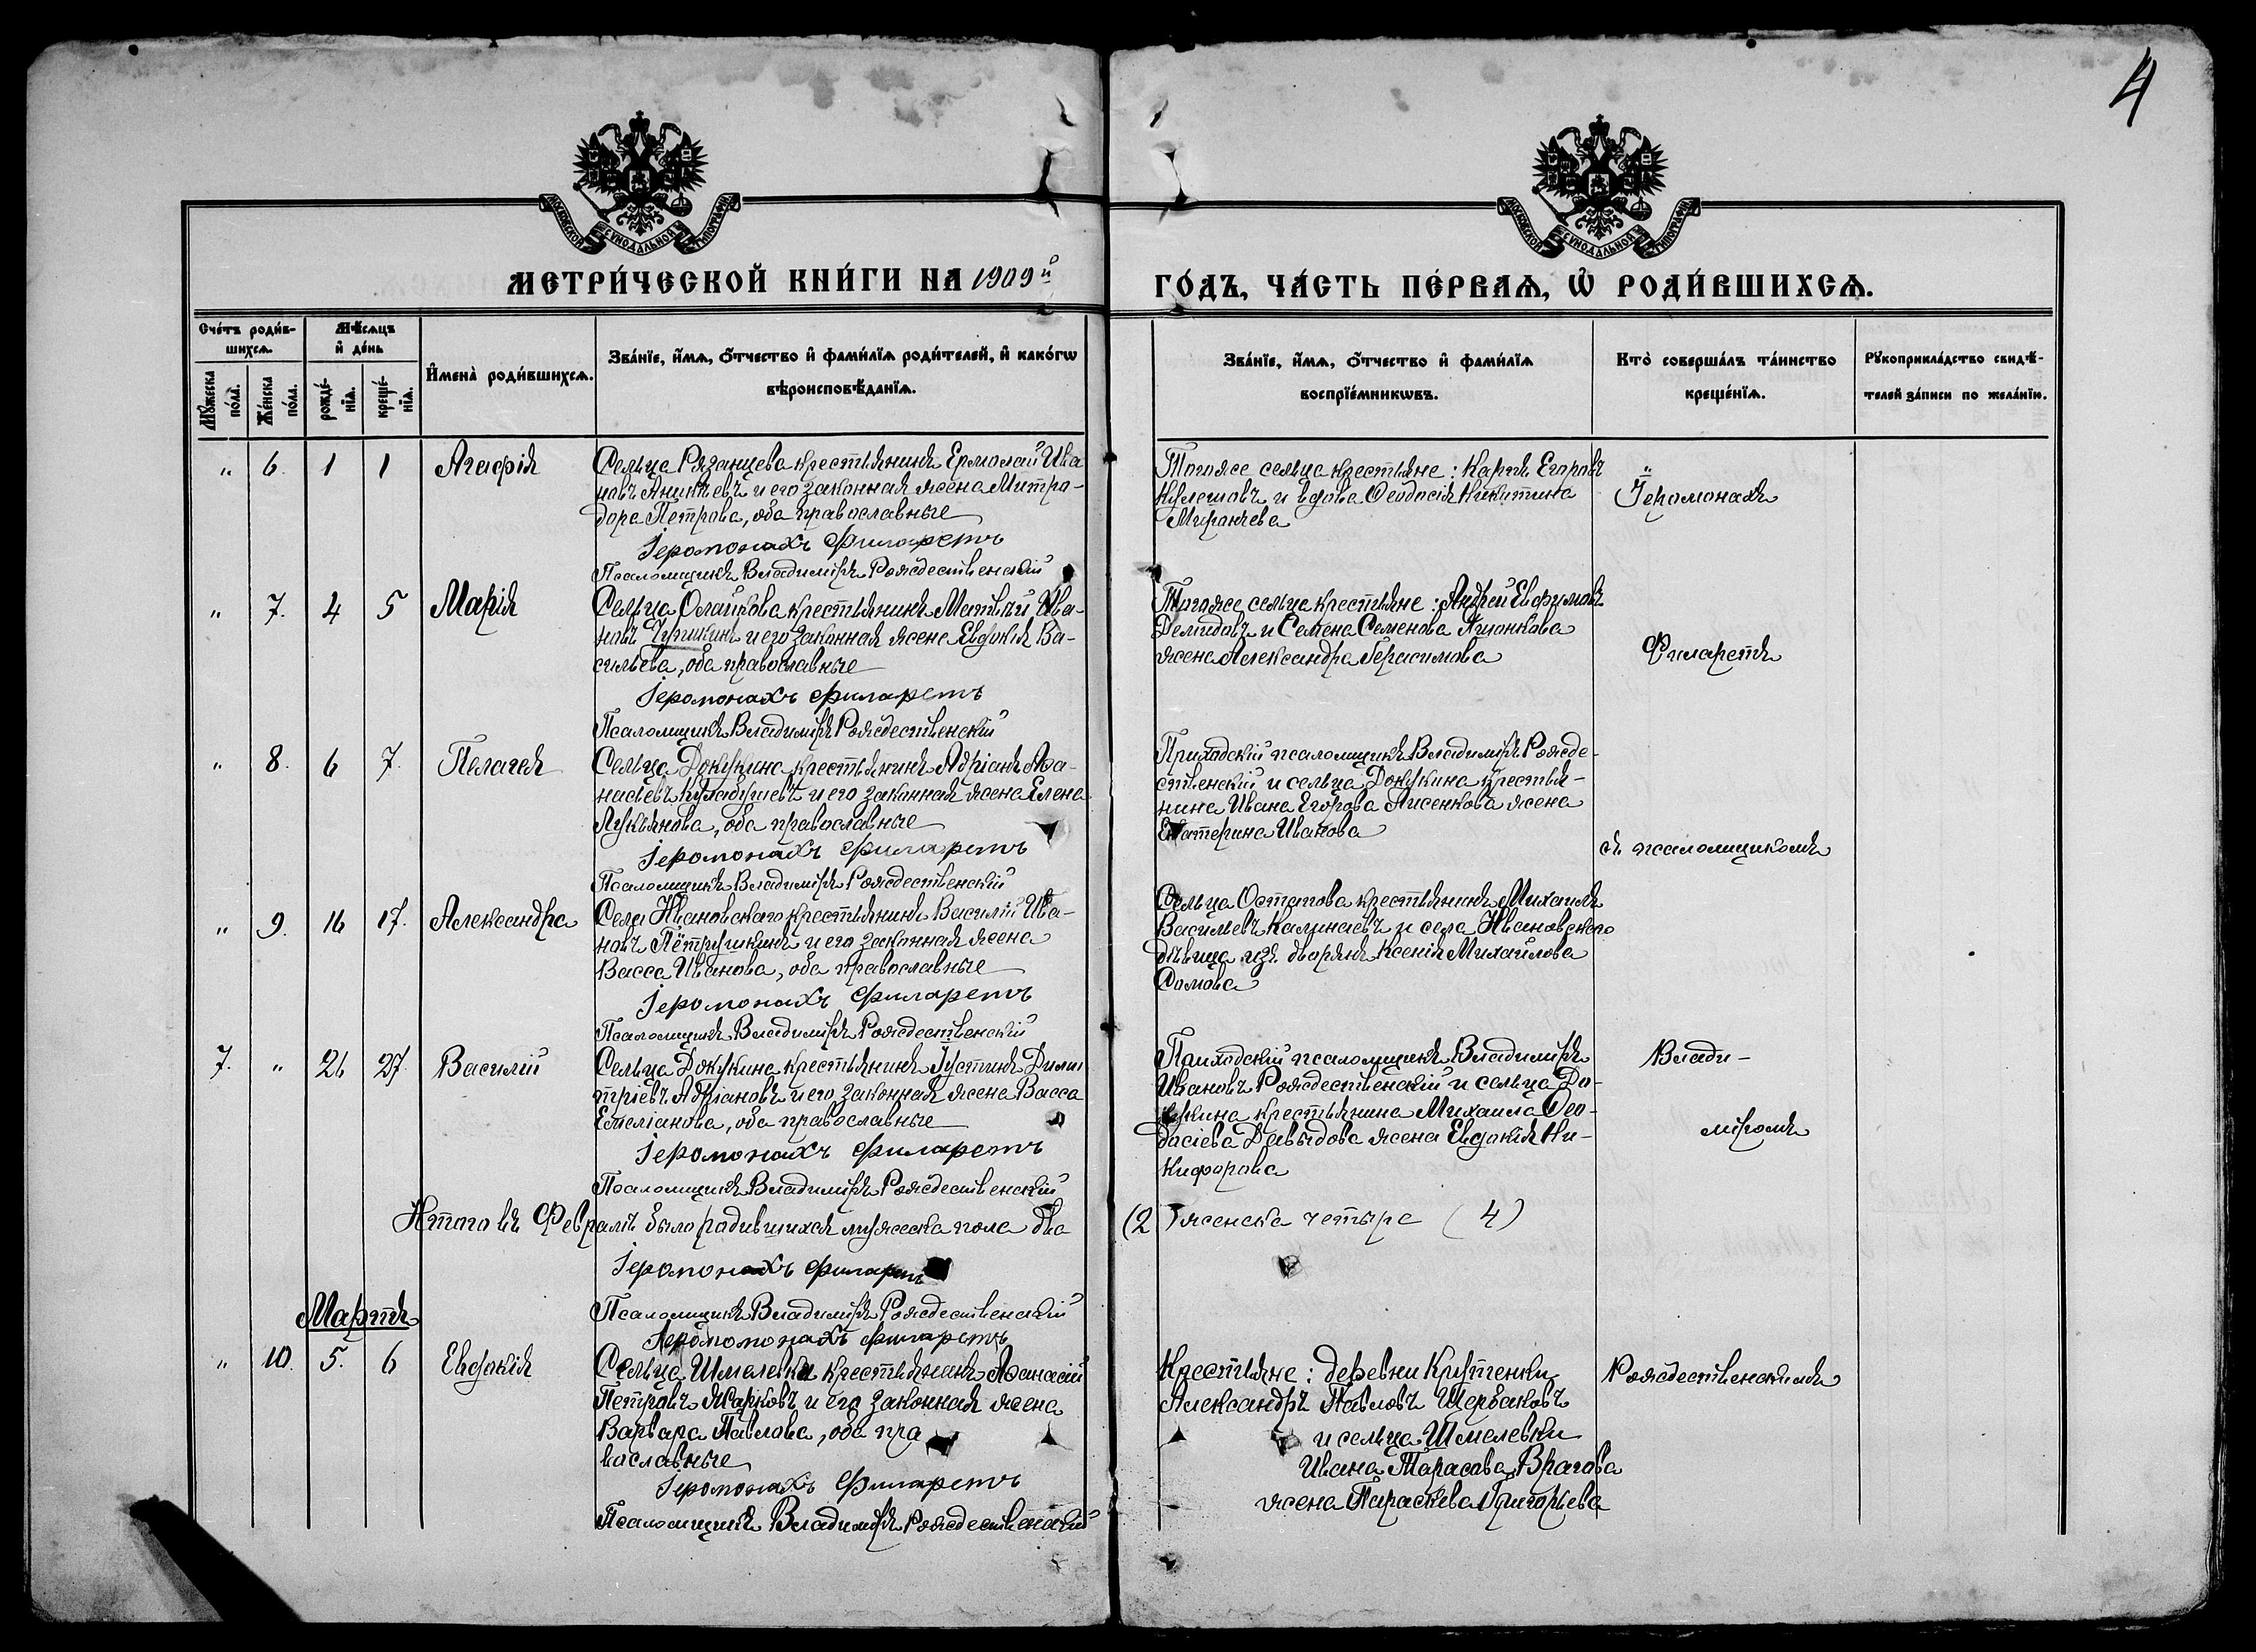 4
МОСКОВСКОЙ СѴНОДАЛЬНОЙ ТИПОГРАФІИ
МОСКОВСКОЙ СѴНОДАЛЬНОЙ ТИПОГРАФІИ
МЕТРИ́ЧЕСКОЙ КНИ́ГИ НА 1909й
ГО́ДЪ, ЧА́СТЬ ПЕ́РВАѦ, Ѡ҆ РОДИ́ВШИХСѦ.
Сче́тъ роди́в-
шихсѧ.
Мѣ́сѧцъ
и҆ де́нь
Мꙋ́жеска
по́ла.
Же́нска
по́ла.
рожде́-
нїѧ.
креще́-
нїѧ.
И҆мена̀ роди́вшихсѧ.
Зва́нїе, и҆́мѧ, ѻ҆́тчество и҆ фами́лїѧ роди́телей, и҆ како́гѡ
вѣроисповѣ́данїѧ.
Зва́нїе, и҆́мѧ, ѻ҆́тчество и҆ фами́лїѧ
воспрїе́мникѡвъ.
Кто̀ соверша́лъ та́инство
креще́нїѧ.
Рꙋкоприкла́дство свидѣ́-
телей за́писи по жела́нїю.
" 6. 1 1 Агафія
Сельца Рязанцева крестьянинъ Ермолай Ива
новъ Аникѣевъ и его законная жена Митро-
дора Петрова, оба православные
Іеромонахъ Филаретъ
Псаломщикъ Владиміръ Рождественскій
Тогоже сельца крестьяне: Карпъ Егоровъ
Кулешовъ и вдова Ѳеодосія Никитина
Іеромонахъ
" 7. 4 5 Марія
Сельца крестьянинъ Матвѣй Ива-
новъ и его законная жена Евдокія Ва-
сильева, оба православные
Іеромонахъ Филаретъ
Псаломщикъ Владиміръ Рождественскій
Тогоже сельца крестьяне: Андрей Евфимовъ
Демидовъ и Семена Семенова
жена Александра Герасимова
Филаретъ
" 8. 6 7. Пелагея
Сельца Докукина крестьянинъ Адріанъ Аѳа-
насьевъ и его законная жена Елена
Лукьянова, оба православные
Іеромонахъ Филаретъ
Псаломщикъ Владиміръ Рождественскій
Приходскій псаломщикъ Владиміръ Рожде-
ственскій и сельца Докукина крестья-
нина Ивана Егорова Лисенкова жена
Екатерина Иванова
съ псаломщикомъ
" 9. 16 17. Александра
Села Ивановскаго крестьянинъ Василій Ива-
новъ Пётрушкинъ и его законная жена
Васса Иванова, оба православные
Іеромонахъ Филаретъ
Псаломщикъ Владиміръ Рождественскій
Сельца Остапова крестьянинъ Михаилъ
Васильевъ и села Ивановскаго
дѣвица изъ дворянъ Ксенія Михайлова
Сомова
7. " 26 27. Василій
Сельца Докукина крестьянинъ Іустинъ Дими
тріевъ Адріановъ и его законная жена Васса
Емеліанова, оба православные
Іеромонахъ Филаретъ
Псаломщикъ Владиміръ Рождественскій
Приходскій псаломщикъ Владиміръ
Ивановъ Рождественскій и сельца До-
кукина крестьянина Михаила Ѳео-
досіева Давыдова жена Евдокія Ни-
кифорова
Влади-
міромъ
Итого въ Февралѣ было родившихся мужеска пола два
(2) женска четыре (4)
Іеромонахъ Филаретъ
Псаломщикъ Владиміръ Рождественскій
Іеромонахъ Филаретъ
Мартъ
" 10. 5. 6 Евдокія
Сельца Шмелевки крестьянинъ Аѳанасій
Петровъ Жарковъ и его законная жена
Варвара Павлова, оба пра
вославные
Іеромонахъ Филаретъ
Псаломщикъ Владиміръ Рождественскій
Крестьяне: деревни Крутенки
Александръ Павловъ Щербаковъ
и сельца Шмелевки
Ивана Тарасова Врагова
жена Параскева Григорьева
Рождественскимъ